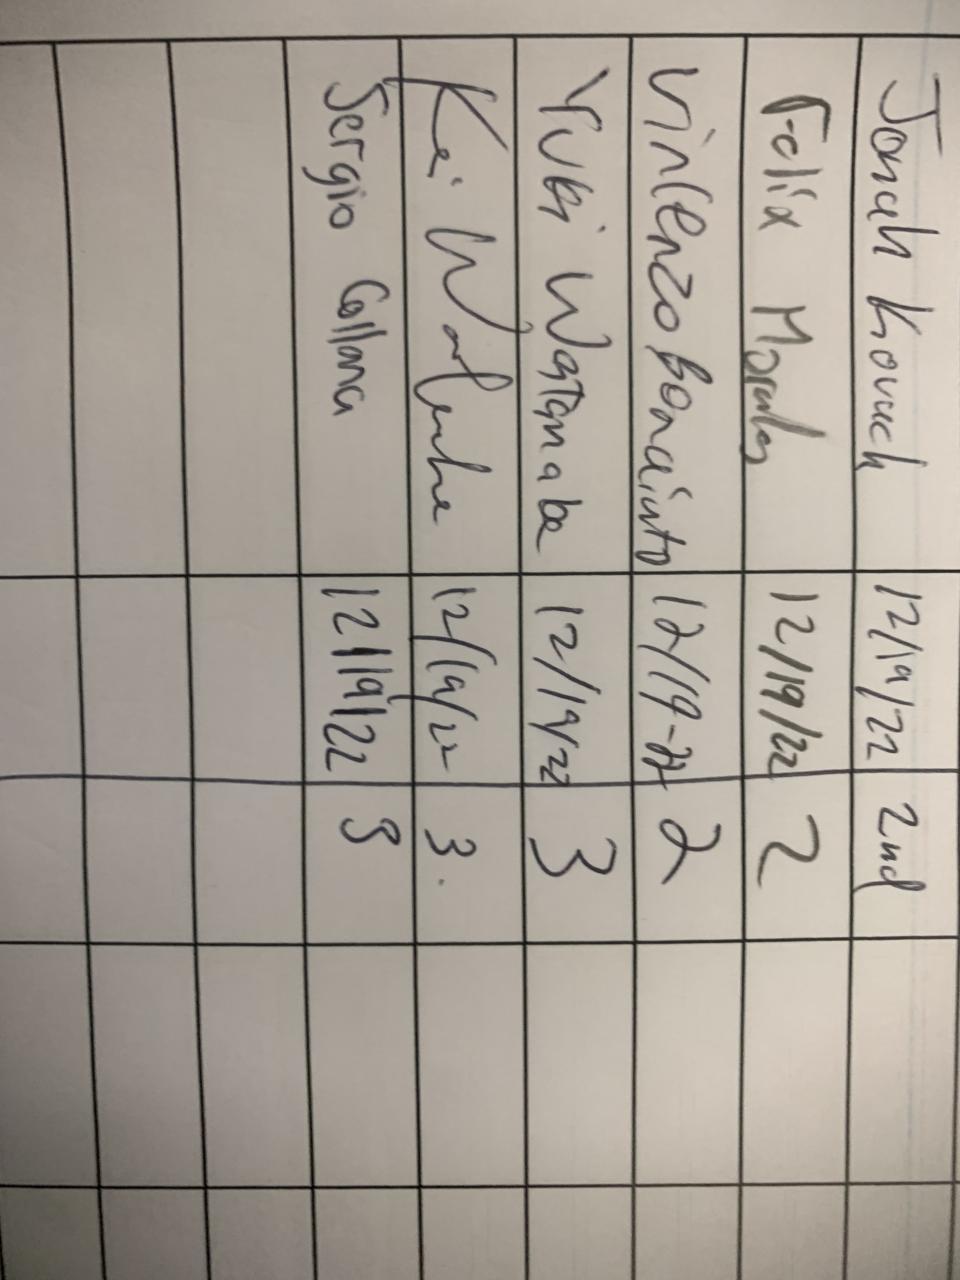 Jonah Kovach 12/19/22 2nd
Felix Morales 12/19/22 2
Vincenzo Bonainto 12/19-22 2
Yuki Watanabe 12/19/22 3
Kei 12/19/22 3.
Sergio Collana 12/19/22 3